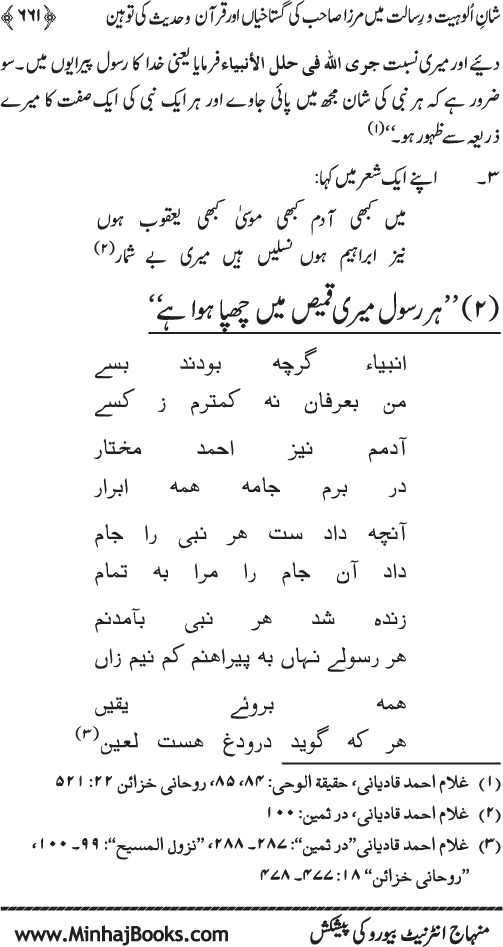 شانِ اُلوہیت و رِسالت میں مرزا صاحب کی گستاخیاں اور قرآن و حدیث کی توہین ﴿۶۶۱﴾
دیئے اور میری نسبت جری اللہ فی حلل الأنبیاء فرمایا یعنی خدا کا رسول پیرایوں میں۔ سو
ضرور ہے کہ ہر نبی کی شان مجھ میں پائی جاوے اور ہر ایک نبی کی ایک صفت کا میرے
ذریعہ سے ظہور ہو۔‘‘(۱)
۳۔ اپنے ایک شعر میں کہا:
میں کبھی آدم کبھی موسیٰ کبھی یعقوب ہوں
نیز ابراہیم ہوں نسلیں ہیں میری بے شمار(۲)
(۲) ’’ہر رسول میری قمیص میں چھپا ہوا ہے‘‘
انبیاء گرچہ بودند بسے
من بعرفان نہ کمترم ز کسے
آدمم نیز احمد مختار
در برم جامہ ھمہ ابرار
آنچہ داد ست ھر نبی را جام
داد آن جام را مرا بہ تمام
زندہ شد ھر نبی بآمدنم
ھر رسولے نہاں بہ پیراھنم کم نیم زاں
ھمہ بروئے یقیں
ھر کہ گوید درودغ ھست لعین(۳)
(۱) غلام احمد قادیانی، حقیقۃ الوحی: ۸۴، ۸۵، روحانی خزائن ۲۲: ۵۲۱
(۲) غلام احمد قادیانی، در ثمین: ۱۰۰
(۳) غلام احمد قادیانی’’در ثمین‘‘: ۲۸۷۔ ۲۸۸، ’’نزول المسیح‘‘: ۹۹۔ ۱۰۰،
’’روحانی خزائن‘‘ ۱۸: ۴۷۷۔ ۴۷۸
منہاج انٹرنیٹ بیورو کی پیشکش www.MinhajBooks.com